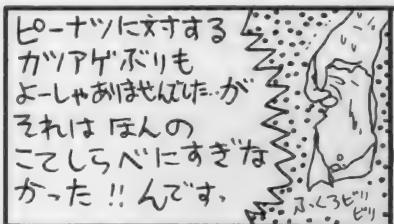 ピーナツに対する
カツアゲぶりも
よーしゃありませんでした‥が
それは ほんの
こてしらべにすぎな
かった!!んです。
ふくろビリ
ビリ